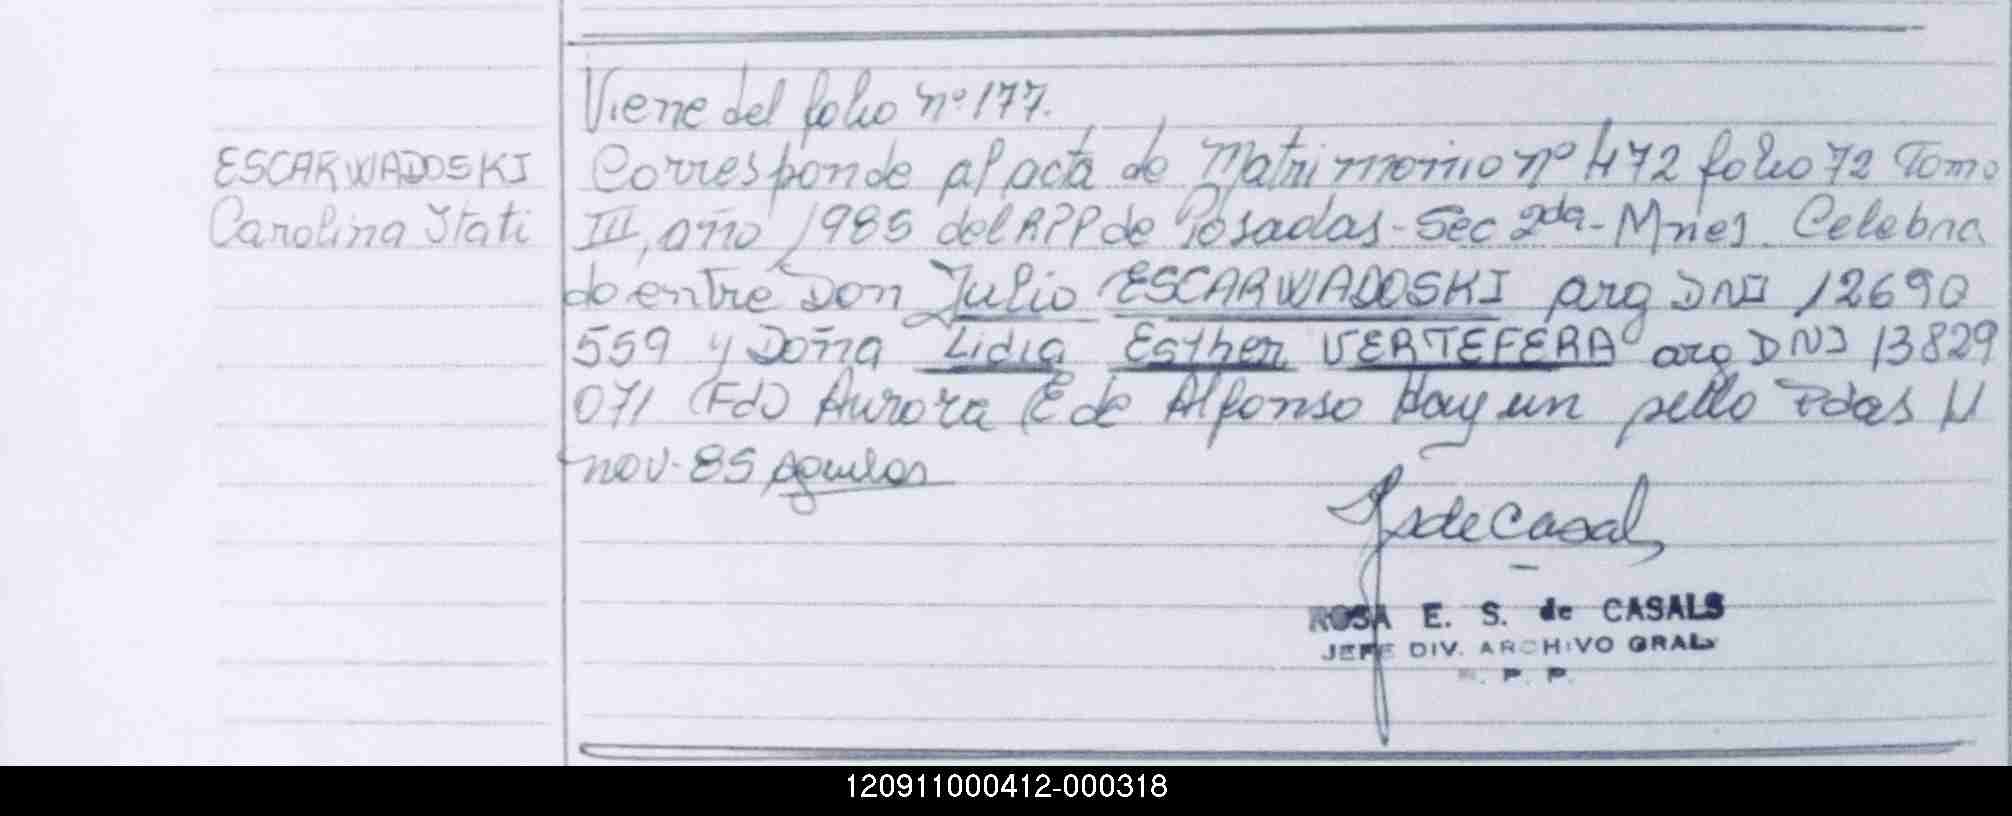 Viene del folio nº 177.
ESCARWADOSKI
Carolina Itati
Corresponde al acta de Matrimonio nº 472 folio 72 Tomo
III, año 1985 del RPP de Posadas - Sec 2da - Mnes. Celebra
do entre Don Julio ESCARWADOSKI arg DNI 12690
559 y Doña Lidia Esther VERTEFERA arg DNI 13829
071 (Fdo) Aurora E de Alfonso Hay un sello Pdas
nov-85
S de Casals
ROSA E. S. de CASALS
JEFE DIV. ARCHIVO GRAL
R. P. P.
120911000412-000318